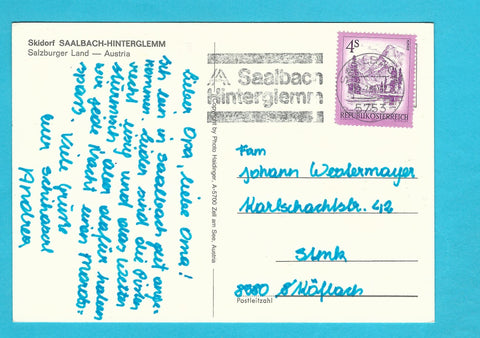 Skidorf SAALBACH-HINTERGLEMM
Salzburger Land — Austria
Lieber Opa, liebe Oma!
Ich bin in Saalbach gut ange-
kommen. Leider sind die Pisten
recht eisig und das Wetter
stürmisch aber dafür haben
wir jede Nacht einen Mords-
spass. Viele Grüße
Andrea
by Photo Haidinger, A-5700 Zell am See, Austria
Saalbach
Hinterglemm
4S
REPUBLIK ÖSTERREICH
5753
Fam
Johann Westermayer
Karlschachtstr. 42
8580 Köflach
Postleitzahl